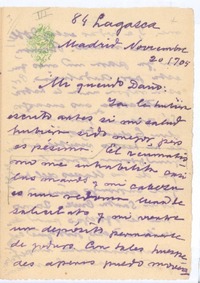 III
84 Lagasca
Madrid Noviembre
20.1904
Mi querido Dario:
Ya le hubiera
escrito antes si mi salud
hubiera sido mejor, pero
es pésima. El reumatis
mo me inhabilita casi
las manos y mi cabeza
es una redoma
salicilato y mi vientre
un depósito permanente
de yoduro. Con tales huespe
des apenas puedo